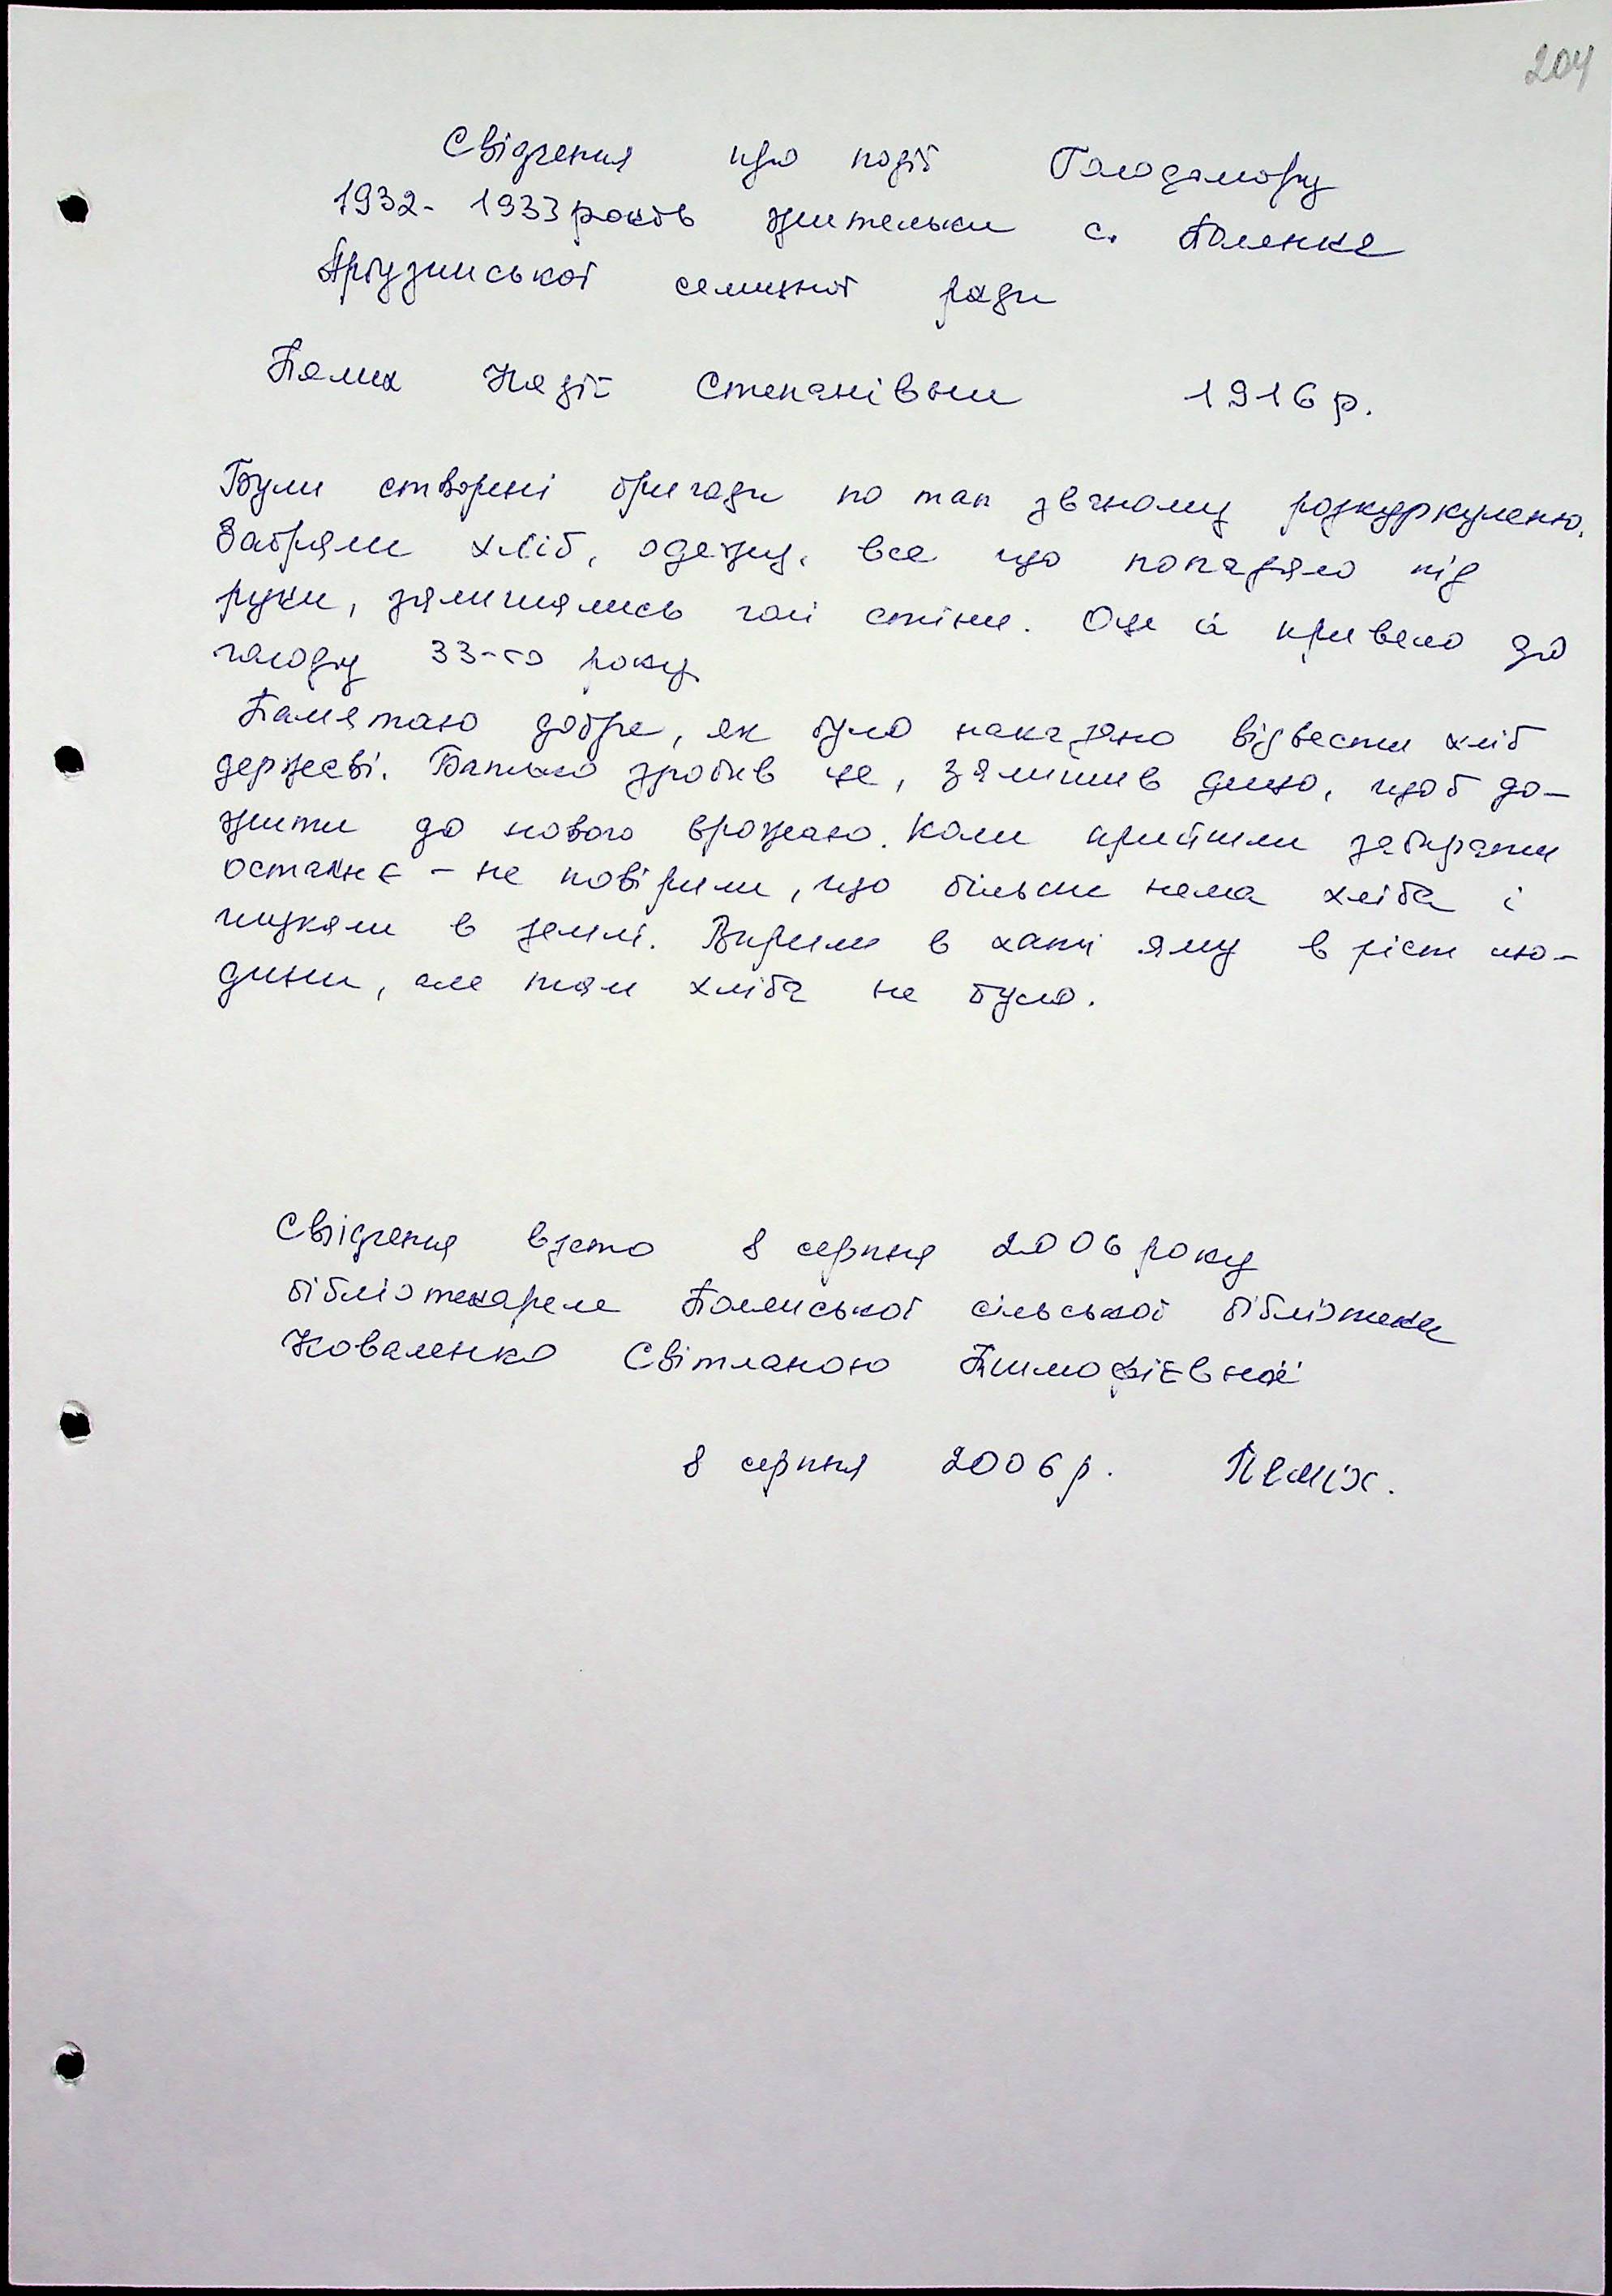 204
Свідчення про події Голодомору
1932-1933 років жительки с. Полянка
Арбузинської селищної ради
Памих Надії Степанівни 1916 р.
Були створені бригади по так званому розкуркуленю.
Забрали хліб, одежу, все що попадало під
руки, залишались голі стіни. Оце й привело до
голоду 33-го року.
Памятаю добре, як було наказано відвести хліб
державі. Батько зробив це, залишив дещо, щоб до-
жити до нового врожаю. Коли прийшли забирати
останнє - не повірили, що більше нема хліба і
шукали в землі. Вирили в хаті яму в ріст лю-
дини, але там хліба не було.
Свідчення взято 8 серпня 2006 року
бібліотекарем Полянської сільської бібліотеки
Коваленко Світланою Тимофієвной
8 серпня 2006 р.